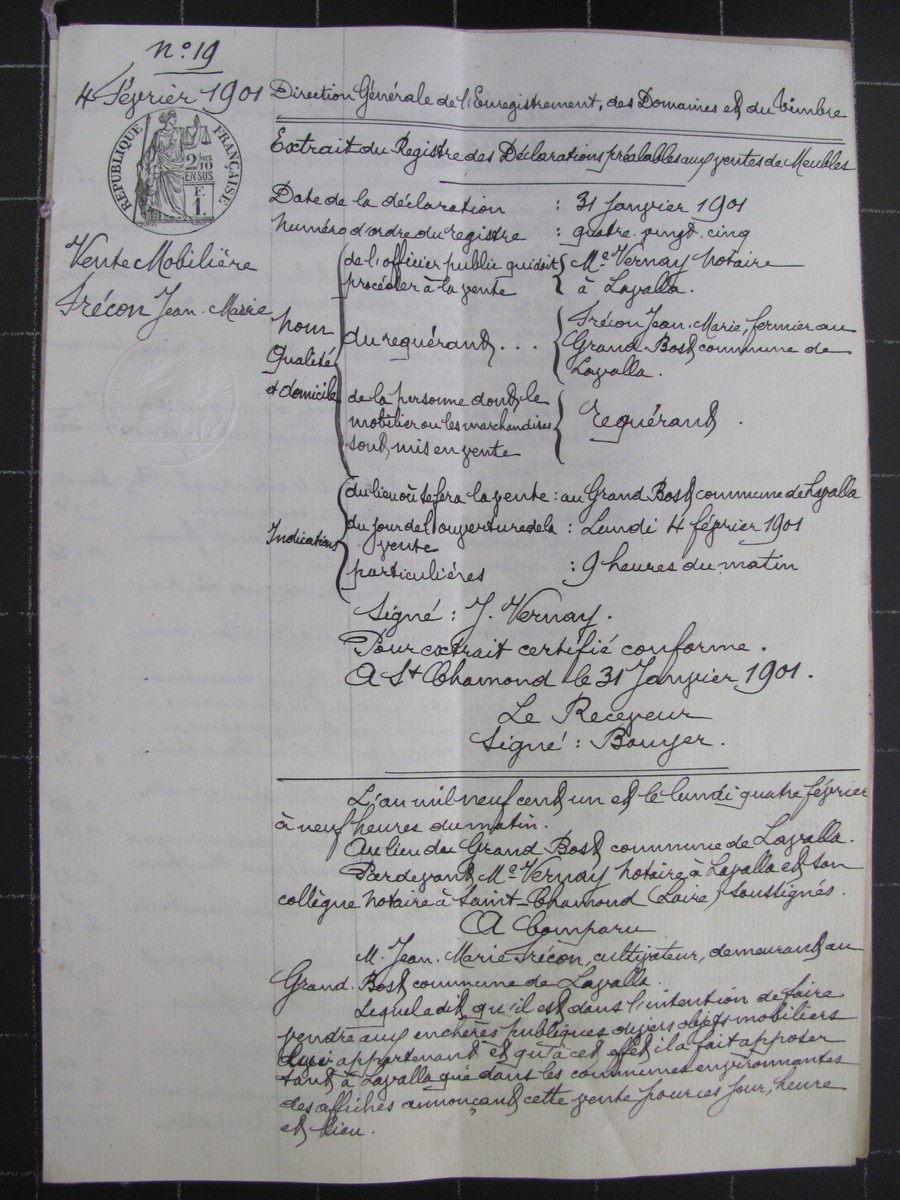 N° 19
4 Février 1901
RÉPUBLIQUE FRANÇAISE
2/10 EN SUS
F.
1.
Vente Mobilière
Frécon Jean-Marie
Direction Générale de l'Enregistrement, des Domaines et du Timbre
Extrait du Registre des Déclarations préalables aux ventes de Meubles
Date de la déclaration : 31 Janvier 1901
Numéro d'ordre du registre : quatre-vingt-cinq
Nom
Qualité
et domicile
de l'officier public qui doit
procéder à la vente
Me Vernay Notaire
à Lavalla.
du requérant . . .
Frécon Jean-Marie, fermier au
Grand-Bost commune de
Lavalla.
de la personne dont le
mobilier ou les marchandises
sont mis en vente
Requérant.
Indications
du lieu où se fera la vente : au Grand Bost commune de Lavalla
du jour de l'ouverture de la : Lundi 4 février 1901
vente
particulières : 9 heures du matin
Signé : J. Vernay.
Pour extrait certifié conforme.
A St Chamond le 31 Janvier 1901.
Le Receveur
Signé : Bouyer.
L'an mil neuf cent un et le lundi quatre février
à neuf heures du matin.
Au lieu du Grand Bost commune de Lavalla.
Pardevant Me Vernay Notaire à Lavalla et son
collègue Notaire à Saint-Chamond (Loire) soussignés.
A Comparu
M. Jean-Marie Frécon, cultivateur, demeurant au
Grand-Bost commune de Lavalla.
Lequel a dit qu'il est dans l'intention de faire
vendre aux enchères publiques divers objets mobiliers
lui appartenant et qu'à cet effet il a fait apposer
tant à Lavalla que dans les communes environnantes
des affiches annonçant cette vente pour ces jour, heure
et lieu.